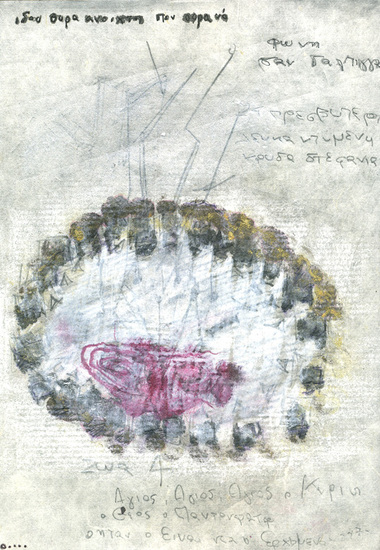 ιδου θυρα ανοιχτη στον ουρανό
φωνη
σαν σαλπιγγα
πρεσβυτεροι
λευκα ντυμενοι
χρυσα στεφανια
ζωα 4
Αγιος, Αγιος, Αγιος ο Κυριος
ο Θεος ο Παντοκρατωρ
ο ηταν ο Ειναι και ο Ερχομενος